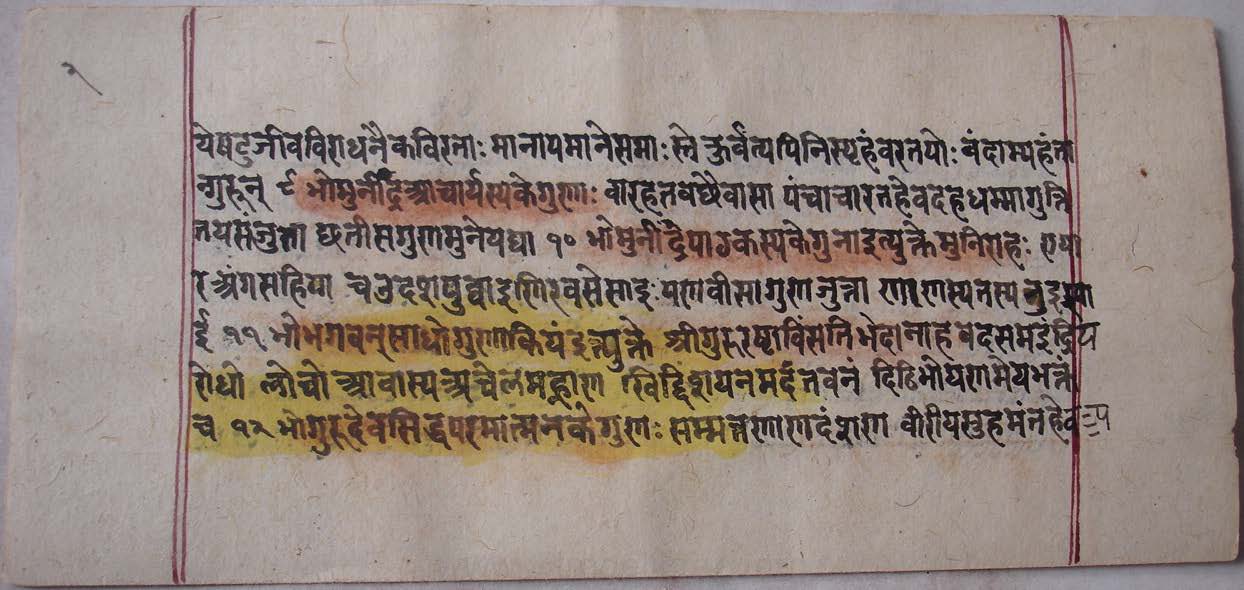 २
येषटुजीवविराधनैकविरताः मानापमानेसमाः स्ने कुर्वंत्यपिनिस्पृहंवरतपो: वंदाम्यहंता
न्गुरून् ९ भोमुनींद्रआचार्यस्यकेगुणाः वारहतव पंचाचारतहेवदहधम्मागुत्रि
तयसंजुत्ता छत्तीसगुणमुनेयव्वा १० भोमुनींद्रैपाठकस्यकेगुनाइत्युक्तेमुनिराहः एया
रअंगसहिया चउदशपुव्वाइणिरवसेसाइ पणवीसागुणजुत्ता णाणस्यतस्य
ई ११ भोभगवन्साधोगुणाकियंइत्युक्ते श्रीगुरुरष्टाविंसतिभेदानाह वदसमइंद्रिय
रोधो लोचो आवास्यअचेलमह्नाण खिद्दिशयनमदंतवनं ठिदिभोयणमेयभत्तं
च १२ भोगुरुदेवसिद्धपरमात्मनकेगुणाः सम्मत्तणाणदंशण वीरीयसुहमंतहेव